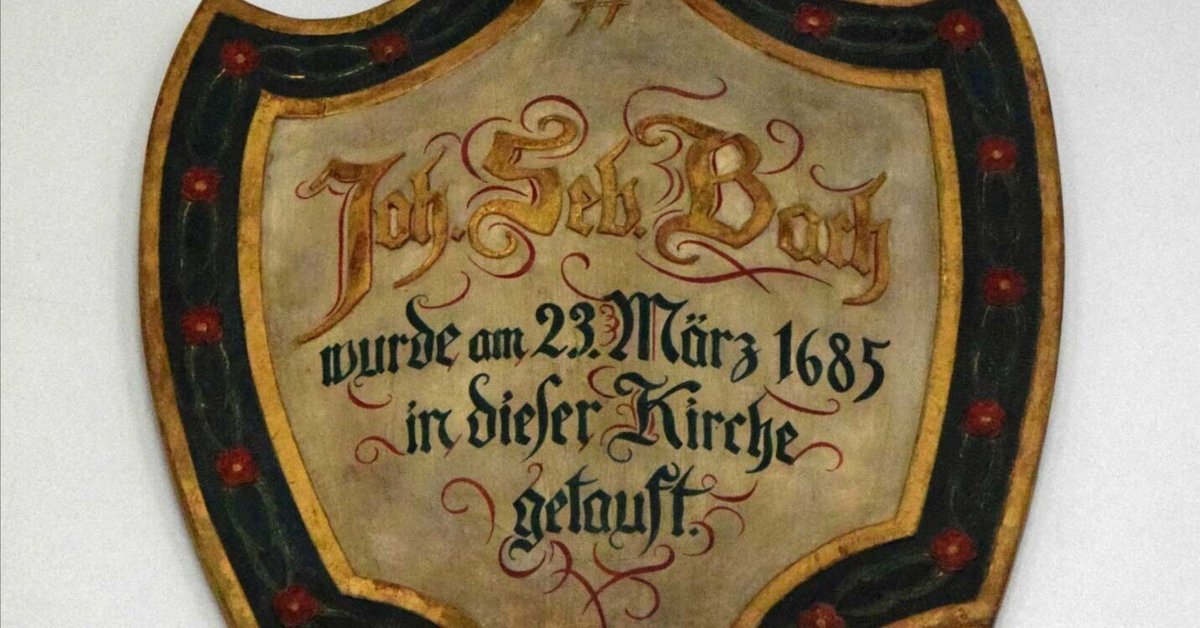 Joh. Seb. Bach
wurde am 23. März 1685
in dieſer Kirche
getauft.